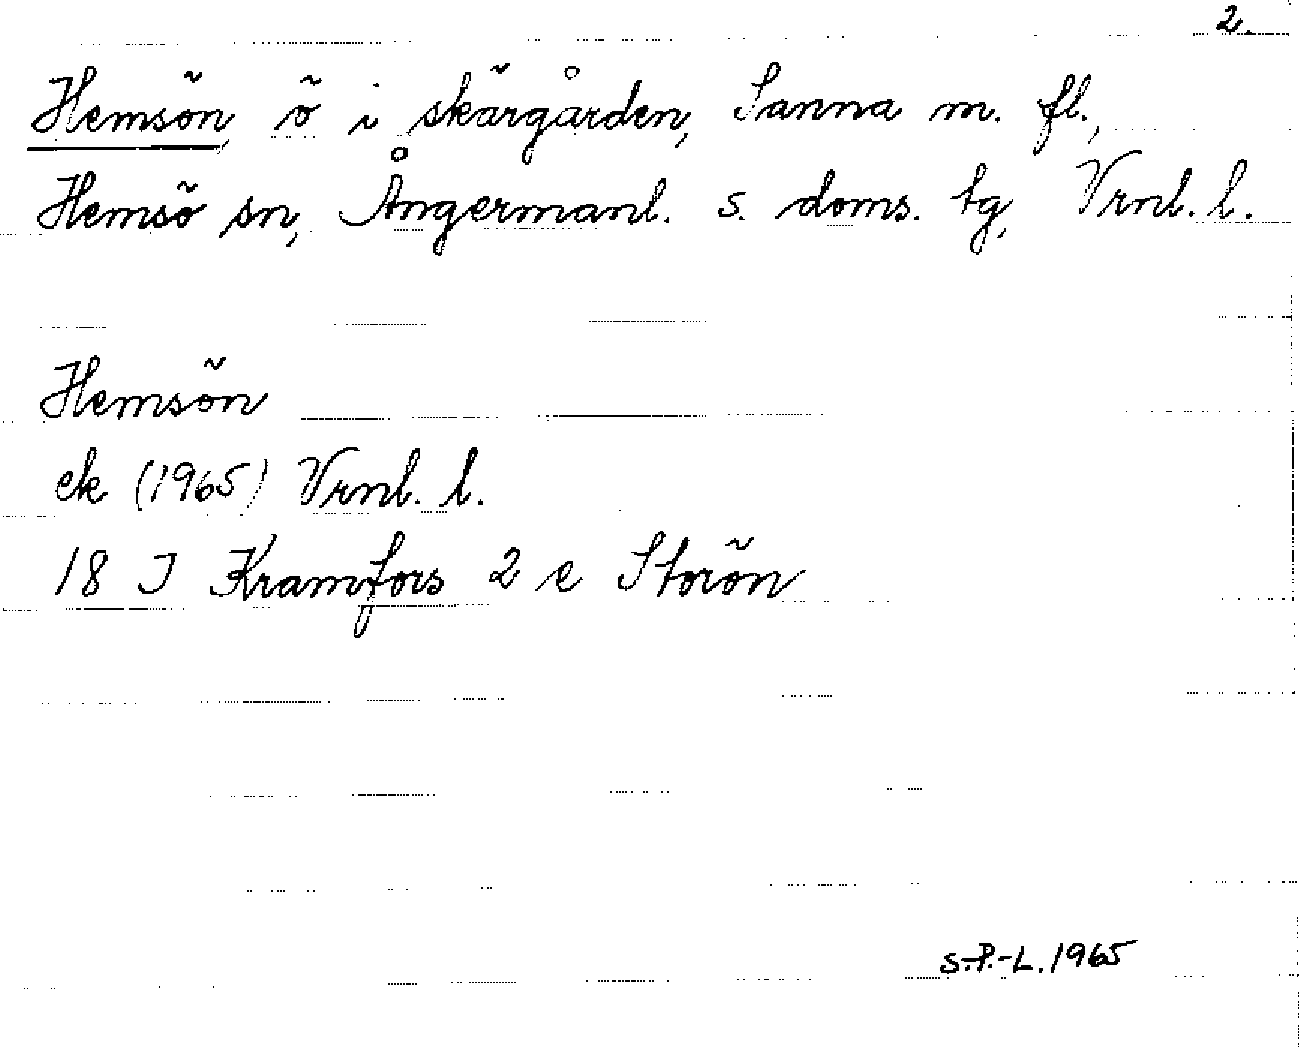 2.
Hemsön, ö i skärgården, Sanna m. fl.,
Hemsö sn, Ångermanl. s. doms. tg, Vrnl. l.
Hemsön
ek (1965) Vrnl. l.
18 J Kramfors 2 e Storön
S.-P.-L. 1965